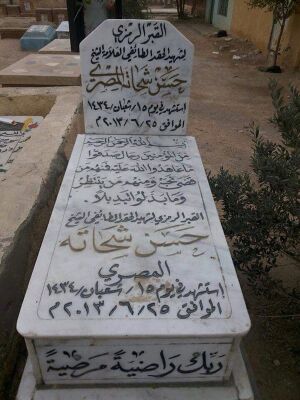 القبر الرمزي
لشهيد الحقد الطائفي العلامة الشيخ
حسن شحاته المصري
استشهد في يوم ١٥/شعبان/١٤٣٤
الموافق ٢٠١٣/٦/٢٥م
بسم الله الرحمن الرحيم
من المؤمنين رجال صدقوا
ما عاهدوا الله عليه فمنهم من
قضى نحبه ومنهم من ينتظر
وما بدلوا تبديلا
القبر الرمزي لشهيد الحقد الطائفي الشيخ
حسن شحاته
المصري
استشهد في يوم ١٥/شعبان/١٤٣٤
الموافق ٢٠١٣/٦/٢٥م
ربك راضية مرضية